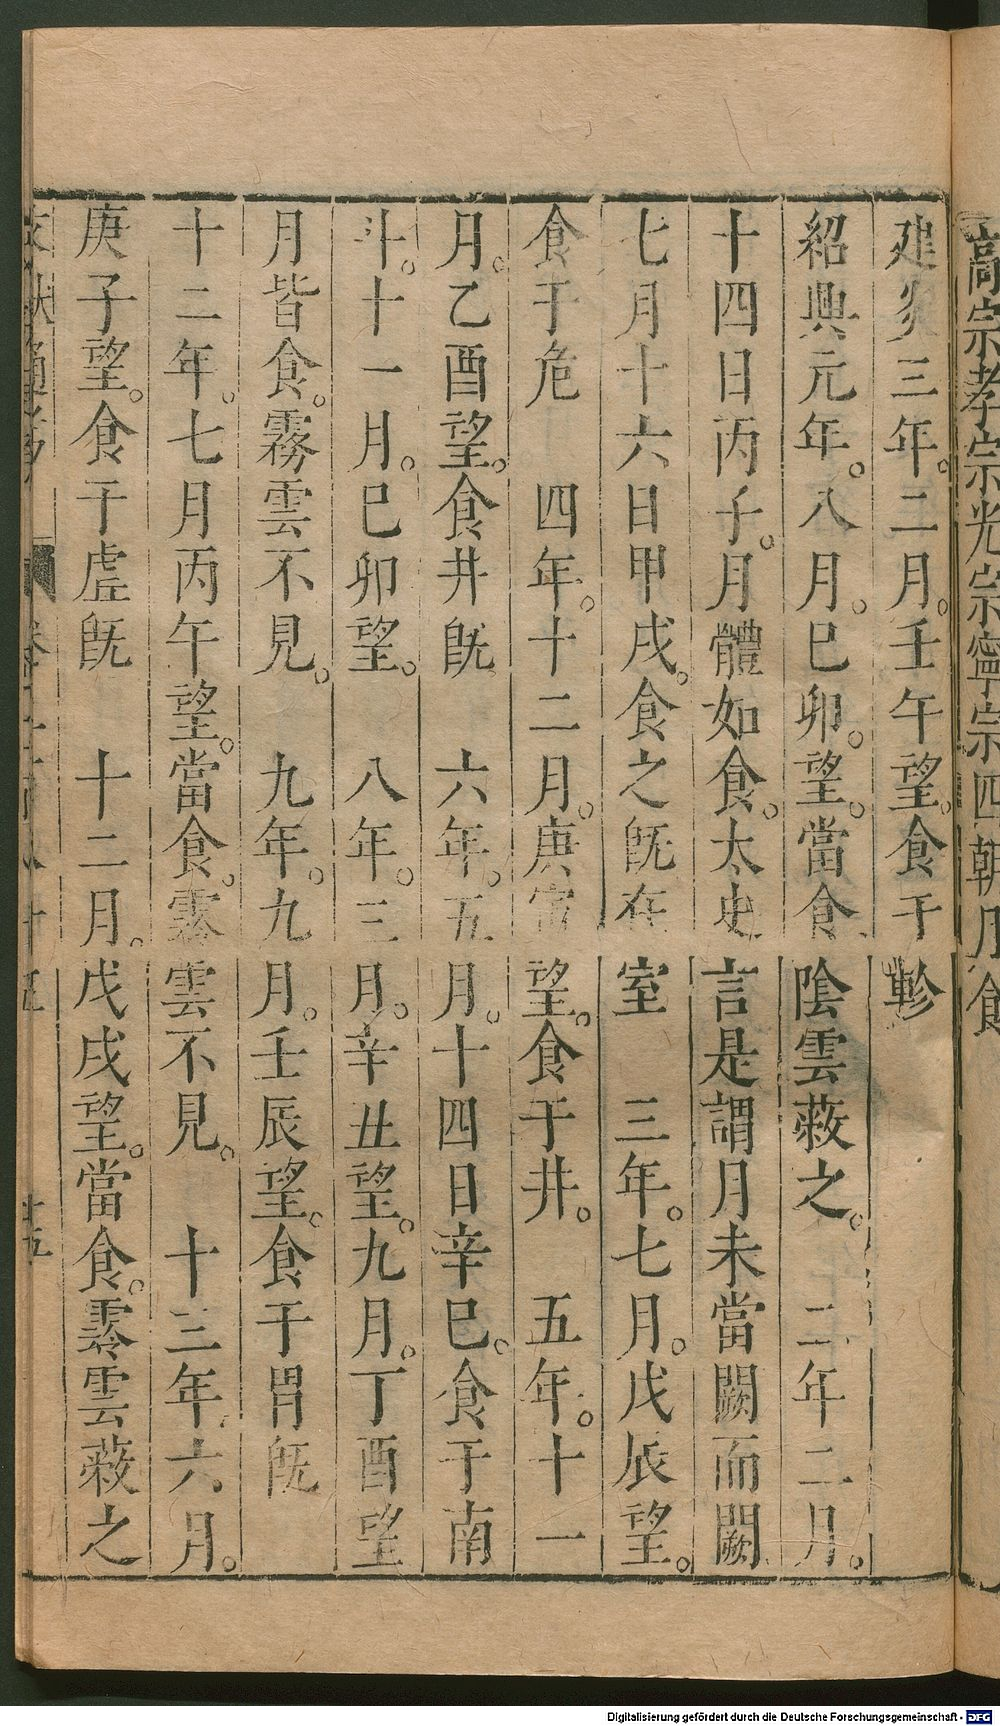 高宗孝宗光宗寧宗四朝月食
建炎三年。二月。壬午望。食于軫
紹興元年。八月。巳卯。望。當食陰雲蔽之。 二年二月。
十四日丙子。月體如食。太史言是謂月未當闕而闕
七月十六日甲戌。食之既在室 三年。七月。戊辰望。
食于危 四年。十二月。庚寅望。食于井。 五年。十一
月。乙酉望。食井既 六年。五月。十四日辛巳。食于南
斗。十一月。巳卯望。 八年。三月。辛丑望。九月。丁酉望
月皆食。霧雲不見。 九年。九月。壬辰望。食于胃既
十二年。七月丙午望。當食。雰雲不見。 十三年六月。
庚子望。食于虛既 十二月。戊戌望。當食。雰雲蔽之
十五
Digitalisierung gefördert durch die Deutsche Forschungsgemeinschaft - DFG